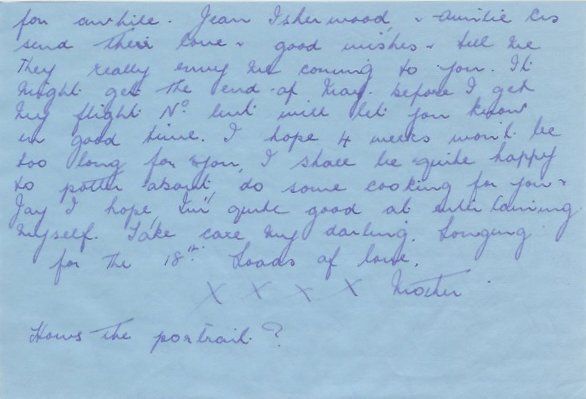 for awhile. Jean Isherwood & Auntie Cis
send their love & good wishes & tell me
they really envy me coming to you. It
might get the end of May. before I get
my flight No but will let you know
in good time. I hope 4 weeks won't be
too long for you, I shall be quite happy
to potter about, do some cooking for you &
Jay I hope, I'm quite good at entertaining
myself. Take care my darling. Longing
for the 18th Loads of love.
X X X X Mother
Hows the portrait?